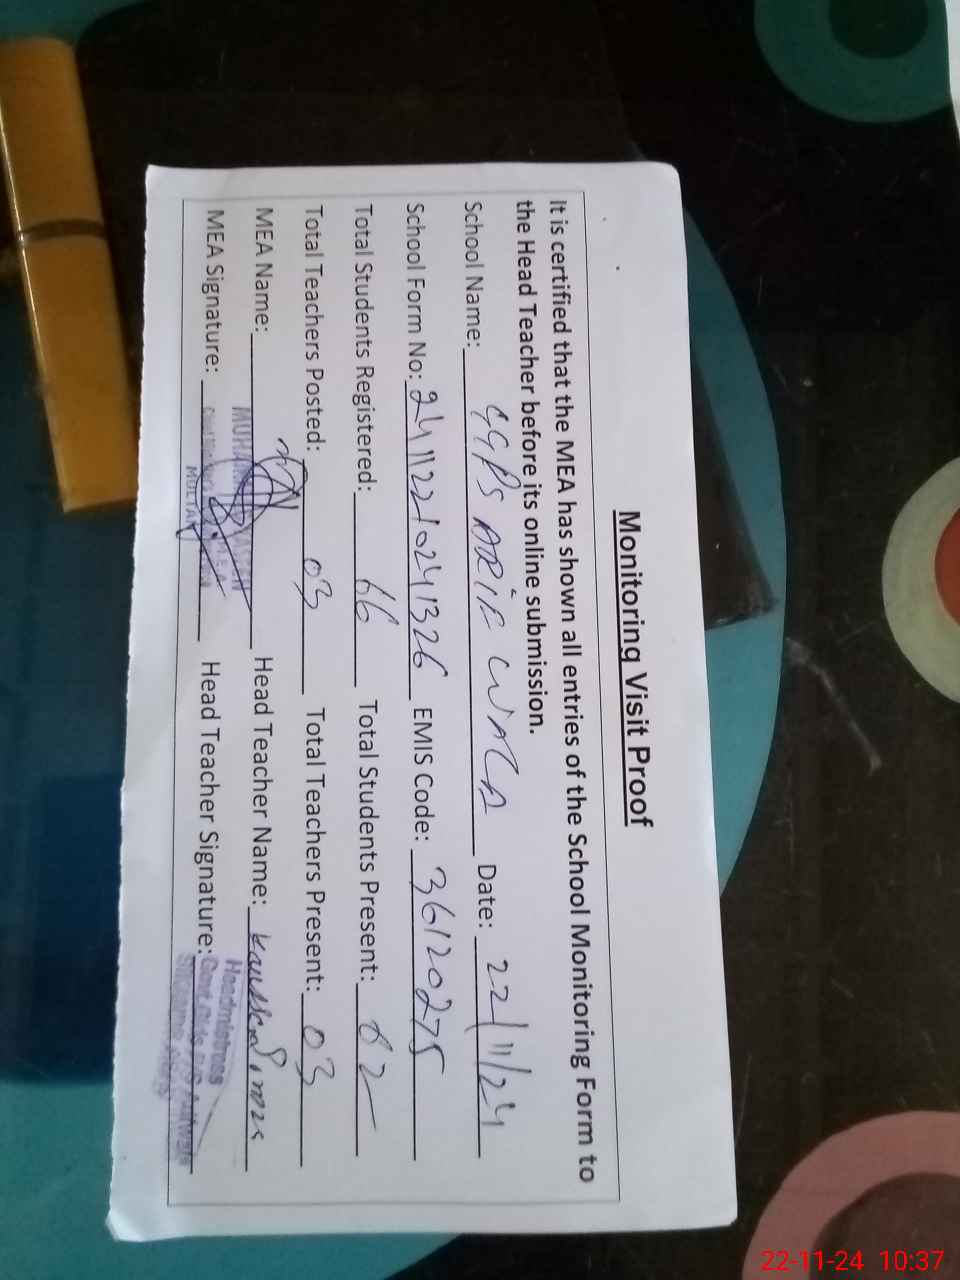 Monitoring Visit Proof
It is certified that the MEA has shown all entries of the School Monitoring Form to
the Head Teacher before its online submission.
School Name: GGPS ARIF WALA Date: 22/11/24
School Form No: 24112210241326 EMIS Code: 36120275
Total Students Registered: 66 Total Students Present: 62
Total Teachers Posted: 03 Total Teachers Present: 03
MEA Name: Head Teacher Name:
MEA Signature: MULTAN Head Teacher Signature:
Headmistress
22-11-24 10:37